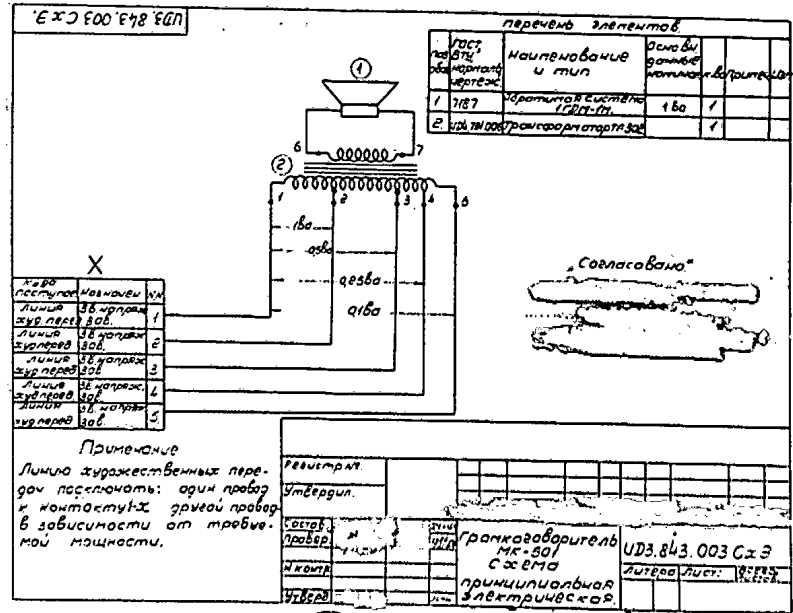 UD3.843.003 СхЭ.
перечень элементов.
поз
ГОСТ, ВТУ, нормаль чертеж.
наименование и тип
Основн. данные номинал
к-во
Примеч
1 7187 Обратимая система 1ГДМ-1М. 1ва 1
2. Трансформатор 1
1
6 7
2
1 2 3 4 5
1ва
0,5ва
0,25ва
0,1ва
X
"Согласовано."
поступает назначен
Линия худ.перед Зв.напряж зав. 1
Линия худ.перед Зв.напряж зав. 2
Линия худ.перед Зв.напряж зав 3
Линия худ.перед Зв.напряж. зав. 4
Линия худ.перед Зв.напряж зав. 5.
Примечание
Линию художественных пере-
дач подключать: один провод
к контакту 1-X другой провод
в зависимости от требуе-
мой мощности.
Регистр.№.
Утвердил.
Состав.
Провер.
Н.контр
Утверд
Громкоговоритель
МК-501
Схема
принципиальная
электрическая.
UD3.843.003 СхЭ
Литера Лист: